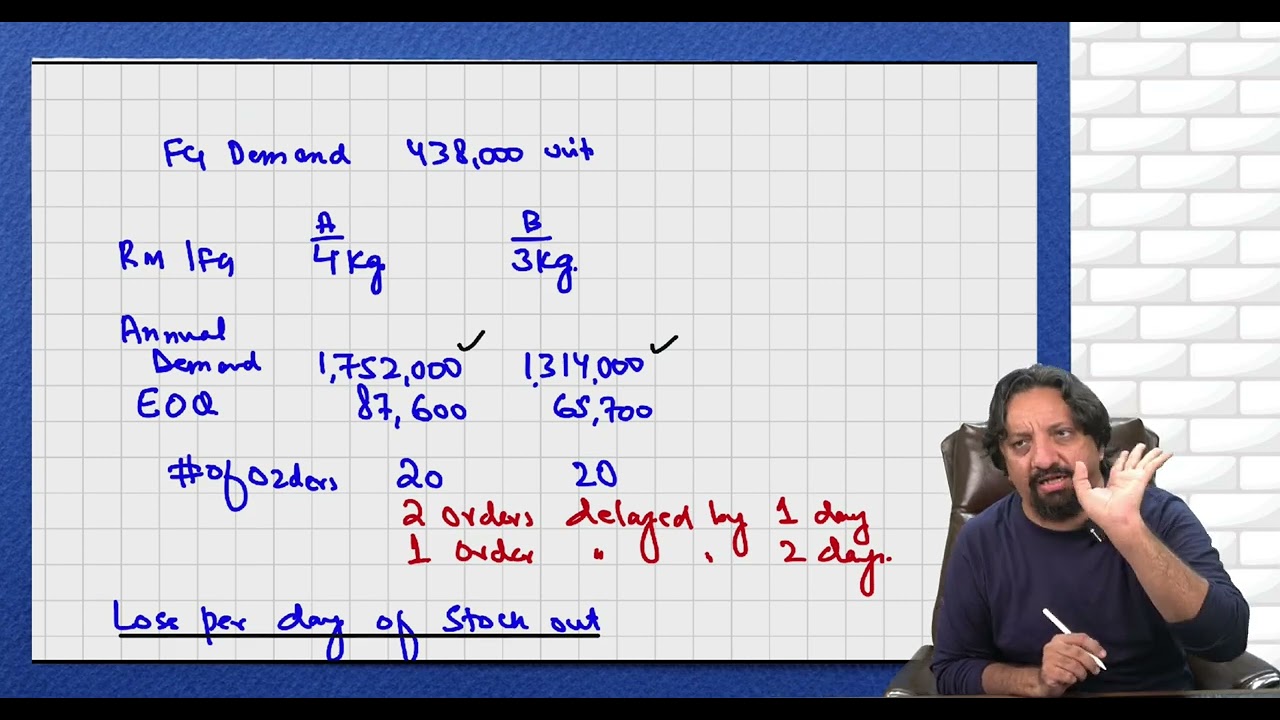 FG Demand 438,000 unit
A B
RM /FG 4 kg 3 kg.
Annual
Demand 1,752,000 ✓ 1,314,000 ✓
EOQ 87,600 65,700
# of orders 20 20
2 orders delayed by 1 day
1 order " " 2 days.
Loss per day of stock out